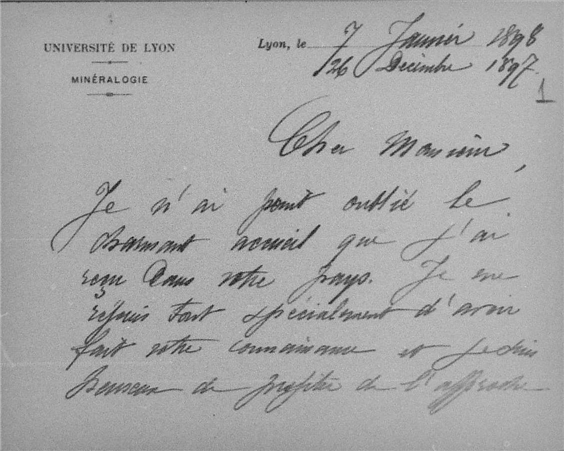 UNIVERSITÉ DE LYON
MINÉRALOGIE
Lyon, le 7 Janvier 1898
/26 Décembre 1897
1
Cher Monsieur,
Je n'ai point oublié le
charmant accueil que j'ai
reçu dans votre pays. Je me
réjouis tout spécialement d'avoir
fait votre connaissance et je suis
heureux de profiter de l'approche